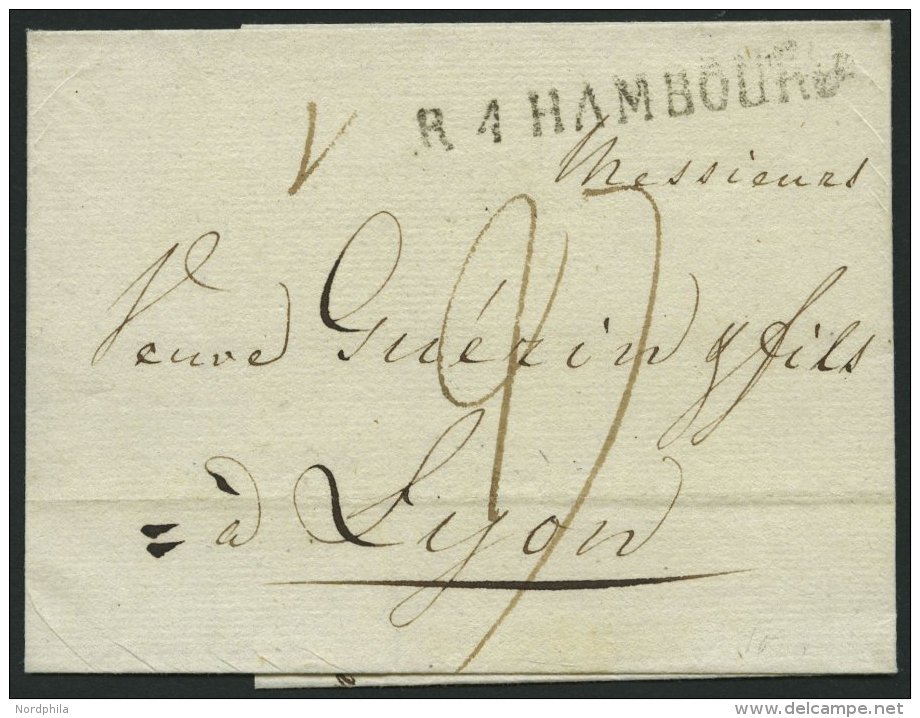 R 4 HAMBOURG
Messieurs
Veuve Guérin & fils
à Lyon
Nordphila
delcampe.net